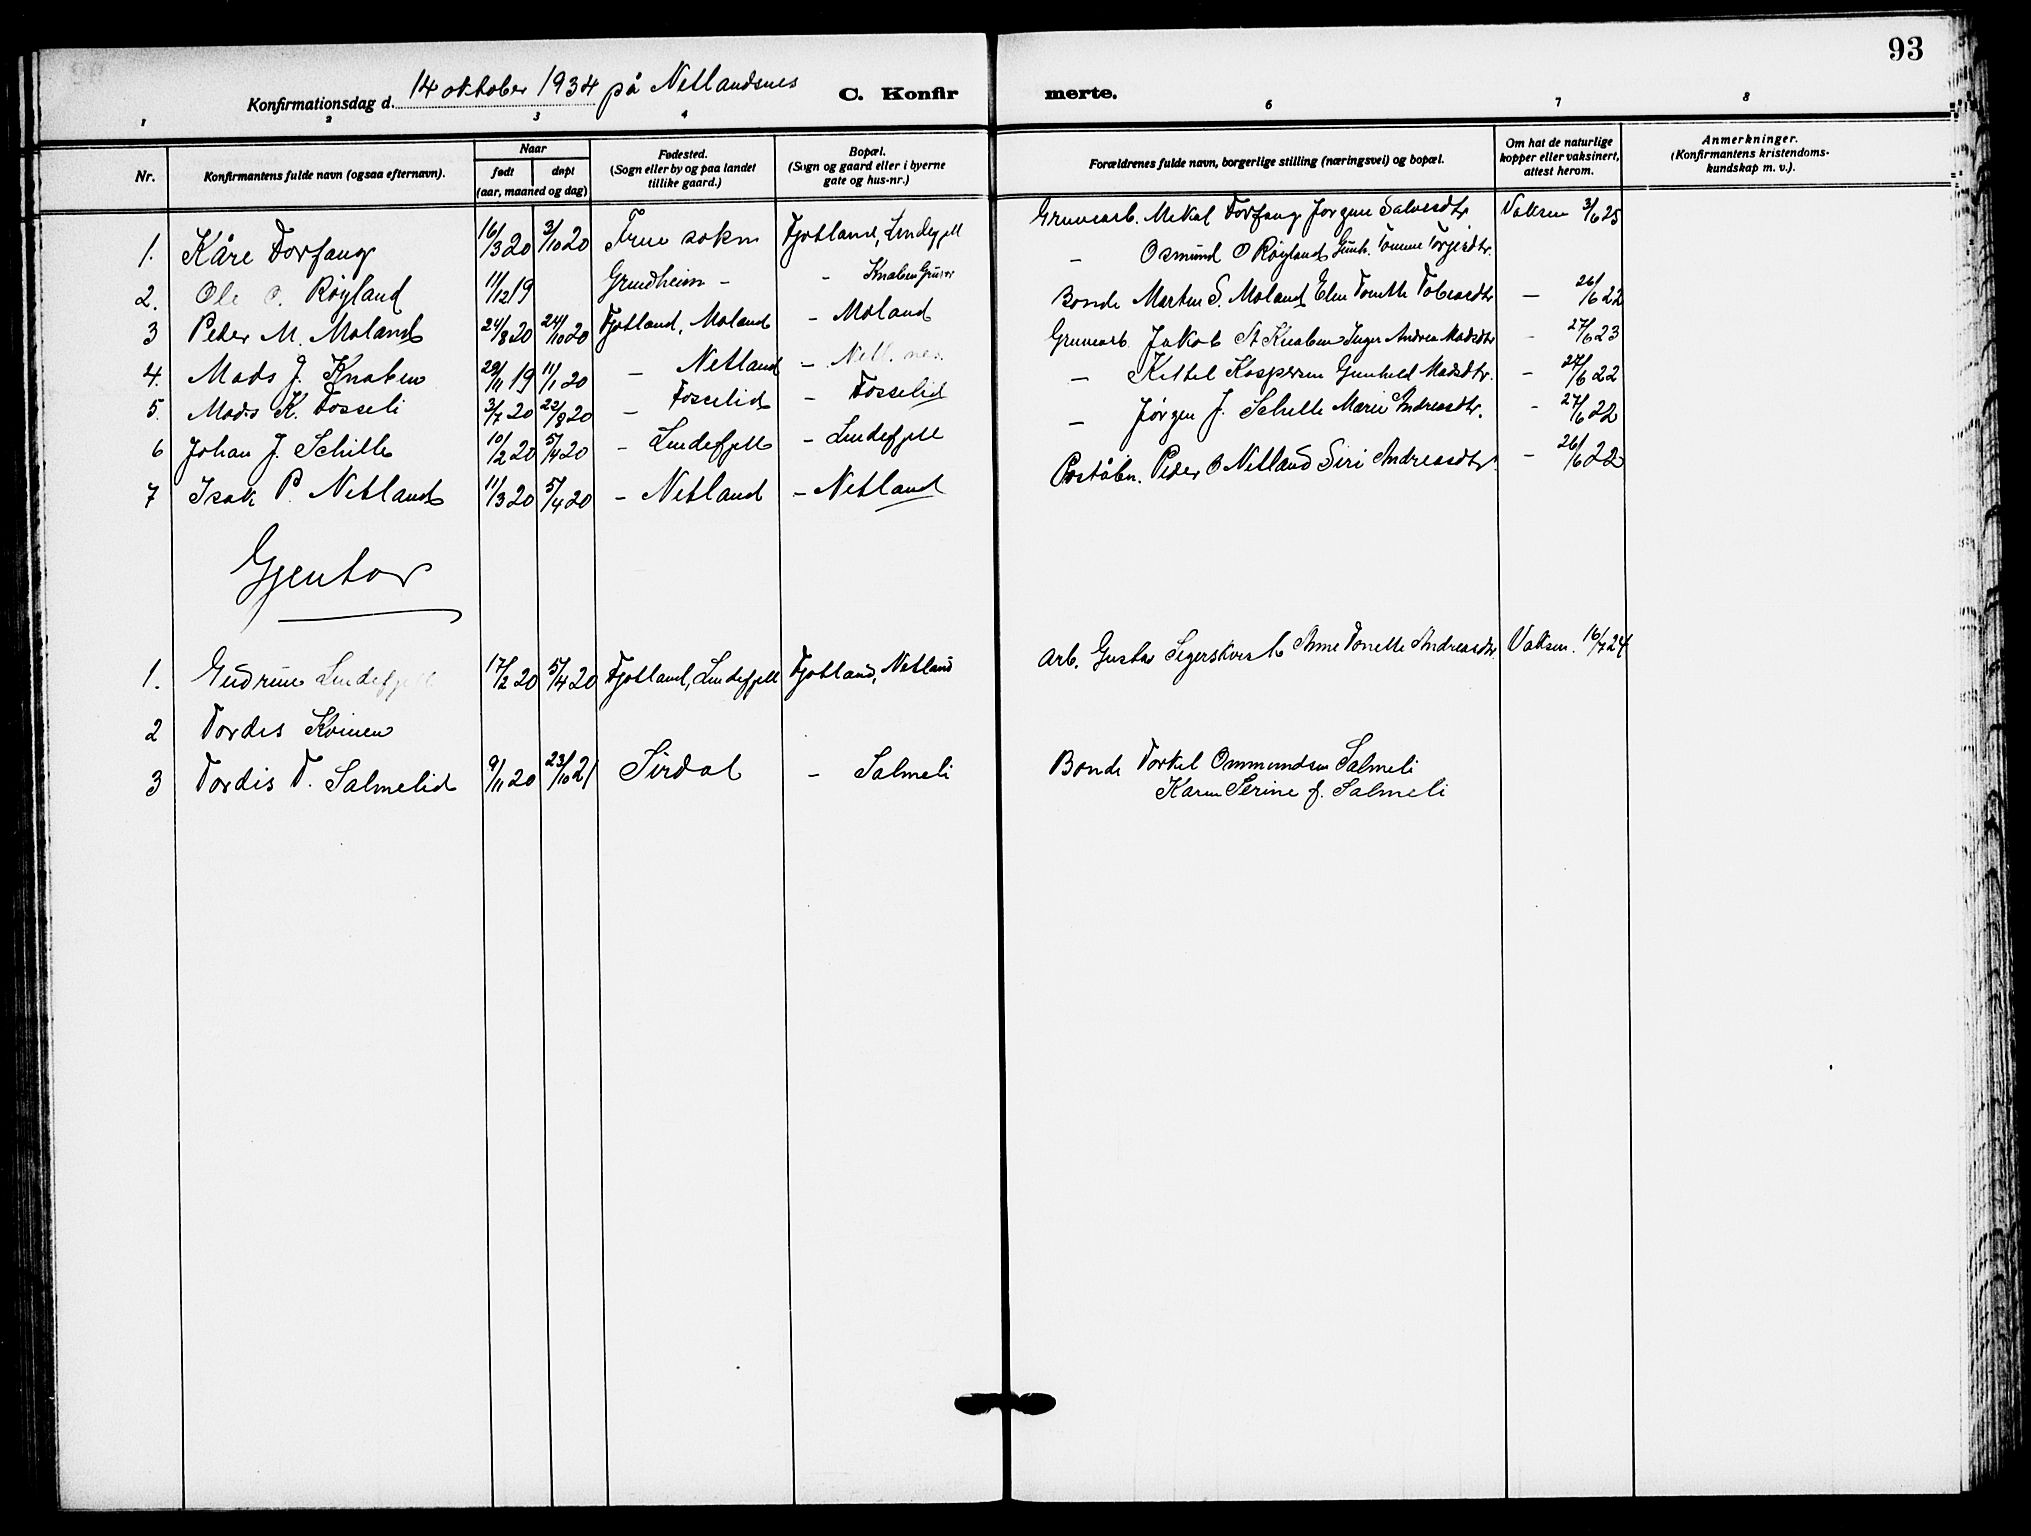 93
Konfirmationsdag d. 14 oktober 1934 på Netlandsnes C. Konfir merte.
1 2 3 4 6 7 8
Nr. Konfirmantens fulde navn (ogsaa efternavn). Naar født døpt (aar, maaned og dag) Fødested. (Sogn eller by og paa landet tillike gaard.) Bopæl. (Sogn og gaard eller i byerne gate og hus-nr.) Forældrenes fulde navn, borgerlige stilling (næringsvei) og bopæl. Om hat de naturlige kopper eller vaksinert, attest herom. Anmerkninger. (Konfirmantens kristendoms-kundskap m. v.).
1. Kåre Torfang 16/3 20 3/10 20 sokn Fjotland, Lindefjell Gruvearb. Mekal Torfang Salvesdtr Vaksin 3/6 25
2. Ole O. Røyland 11/12 19 Grindheim - - Knaben Gruver - Osmund O Røyland Gunh. Tomine Torjesdtr.
3 Peder M. Moland 24/8 20 24/10 20 Fjotland, Moland - Moland Bonde Martin S. Moland Elen Tonette Tobiasdtr - 26/6 22
4. Mads J. Knaben 29/11 19 11/1 20 - Netland - Gruvearb. Jakob A Knaben Inger Andrea Madsdtr - 27/6 23
5. Mads K. Fosseli 3/7 20 22/8 20 - Fosselid - Fosselid - Kittel Kaspersen Gunhild Madsdtr. - 27/6 22
6 Johan J. Schille 10/2 20 5/4 20 - Lindefjell - Lindefjell - Jørgen J. Schille Marie Andreasdtr. - 27/6 22
7 Isak P. Netland 11/3 20 5/4 20 - Netland - Netland Poståbn. Peder O Netland Siri Andreasdtr - 26/6 22
Gjentor
1. Gudrun Lindefjell 17/2 20 5/4 20 Fjotland, Lindefjell Fjotland, Netland Arb. Gustav Segerskvist Anne Tonette Andreasdtr Vaksin. 16/7 24
2 Tordis Kvinen
3 Tordis T. Salmelid 9/11 20 23/10 21 Sirdal - Salmeli Bonde Torkel Ommundsen Salmeli
Karen Serine f. Salmeli